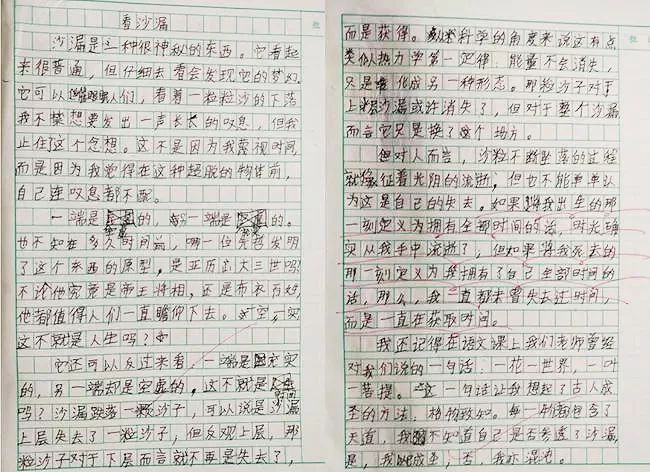 看沙漏
沙漏是一种很神秘的东西。它看起
来很普通，但仔细去看会发现它的梦幻。
它可以人们，看着一粒粒沙的下落
我不禁想要发出一声长长的叹息，但我
止住了这个念想。这不是因为我蔑视时间，
而是因为我觉得在这种超脱的物体前，
自己连叹息都不配。
一端是的，另一端是的。
也不知在多久时间前，哪一位先哲发明
了这个东西的原型，是亚历山大三世吗？
不论他究竟是帝王将相，还是布衣百姓，
他都值得人们一直瞻仰下去。空，实
这不就是人生吗？
它还可以反过来看，一端是充实
的，另一端却是空虚的，这不就是时间
吗？沙漏跌落一粒沙子，可以说是沙漏
上层失去了一粒沙子，但反观上层，那
粒沙子对于下层而言就不再是失去了，
而是获得。从科学的角度来说这有点
类似热力学第一定律：能量不会消失，
只是化成另一种形态。那粒沙子对于
上层沙漏或许消失了，但对于整个沙漏
而言它只是换了个地方。
但对人而言，沙粒不断坠落的过程
就像征着光阴的流逝，但也不能单单认
为这是自己的失去。如果将我出生的那
一刻定义为拥有全部时间的话，时光确
实从我手中流逝了，但如果将我死去的
那一刻定义为我拥有了自己全部时间的
话，那么，我一直都未曾失去过时间，
而是一直在获取时间。
我还记得在语文课上我们老师曾经
对我们说的一句话：一花一世界，一叶
一菩提。这一句话让我想起了古人成
圣的方法，格物致知。每一物都包含了
天道，我不知道自己是否参透了沙漏，
是，我成圣，否，我亦混沌。